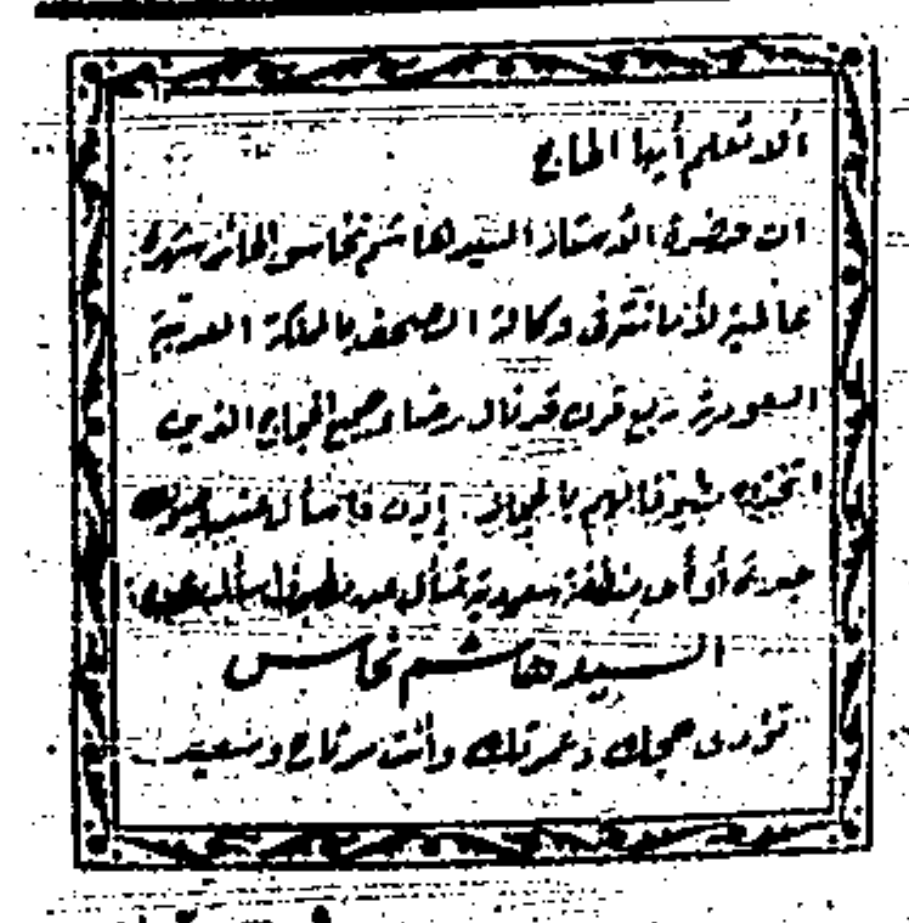 ألا تعلم أيها الحاج
ان حضرة الأستاذ السيد هاشم نحاس الحائز شهرة
عالمية لأمانته في وكالة الصحف بالمملكة العربية
السعودية ربع قرن قد نال رضا وجميع الحجاج الذين
اتخذوه بالحجاز. إذن فاسأل عند
جدة أو أي منطقة سعودية تسأل عن
السيد هاشم نحاس
تؤدى حجك وعمرتك وأنت مرتاح وسعيد